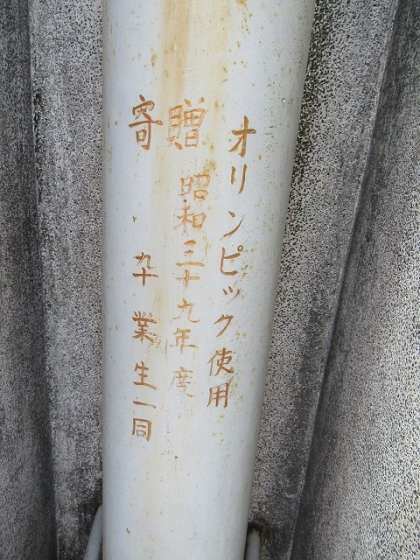 オリンピック使用
寄贈
昭和三十九年度
卆業生一同